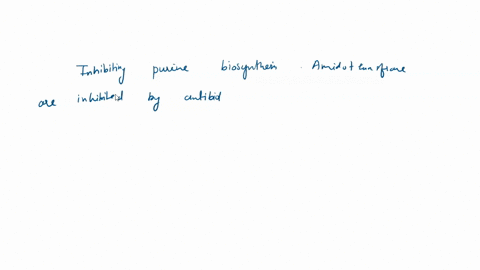 Inhibiting purine biosynthesis . Amidotransferase
are inhibited by antibid